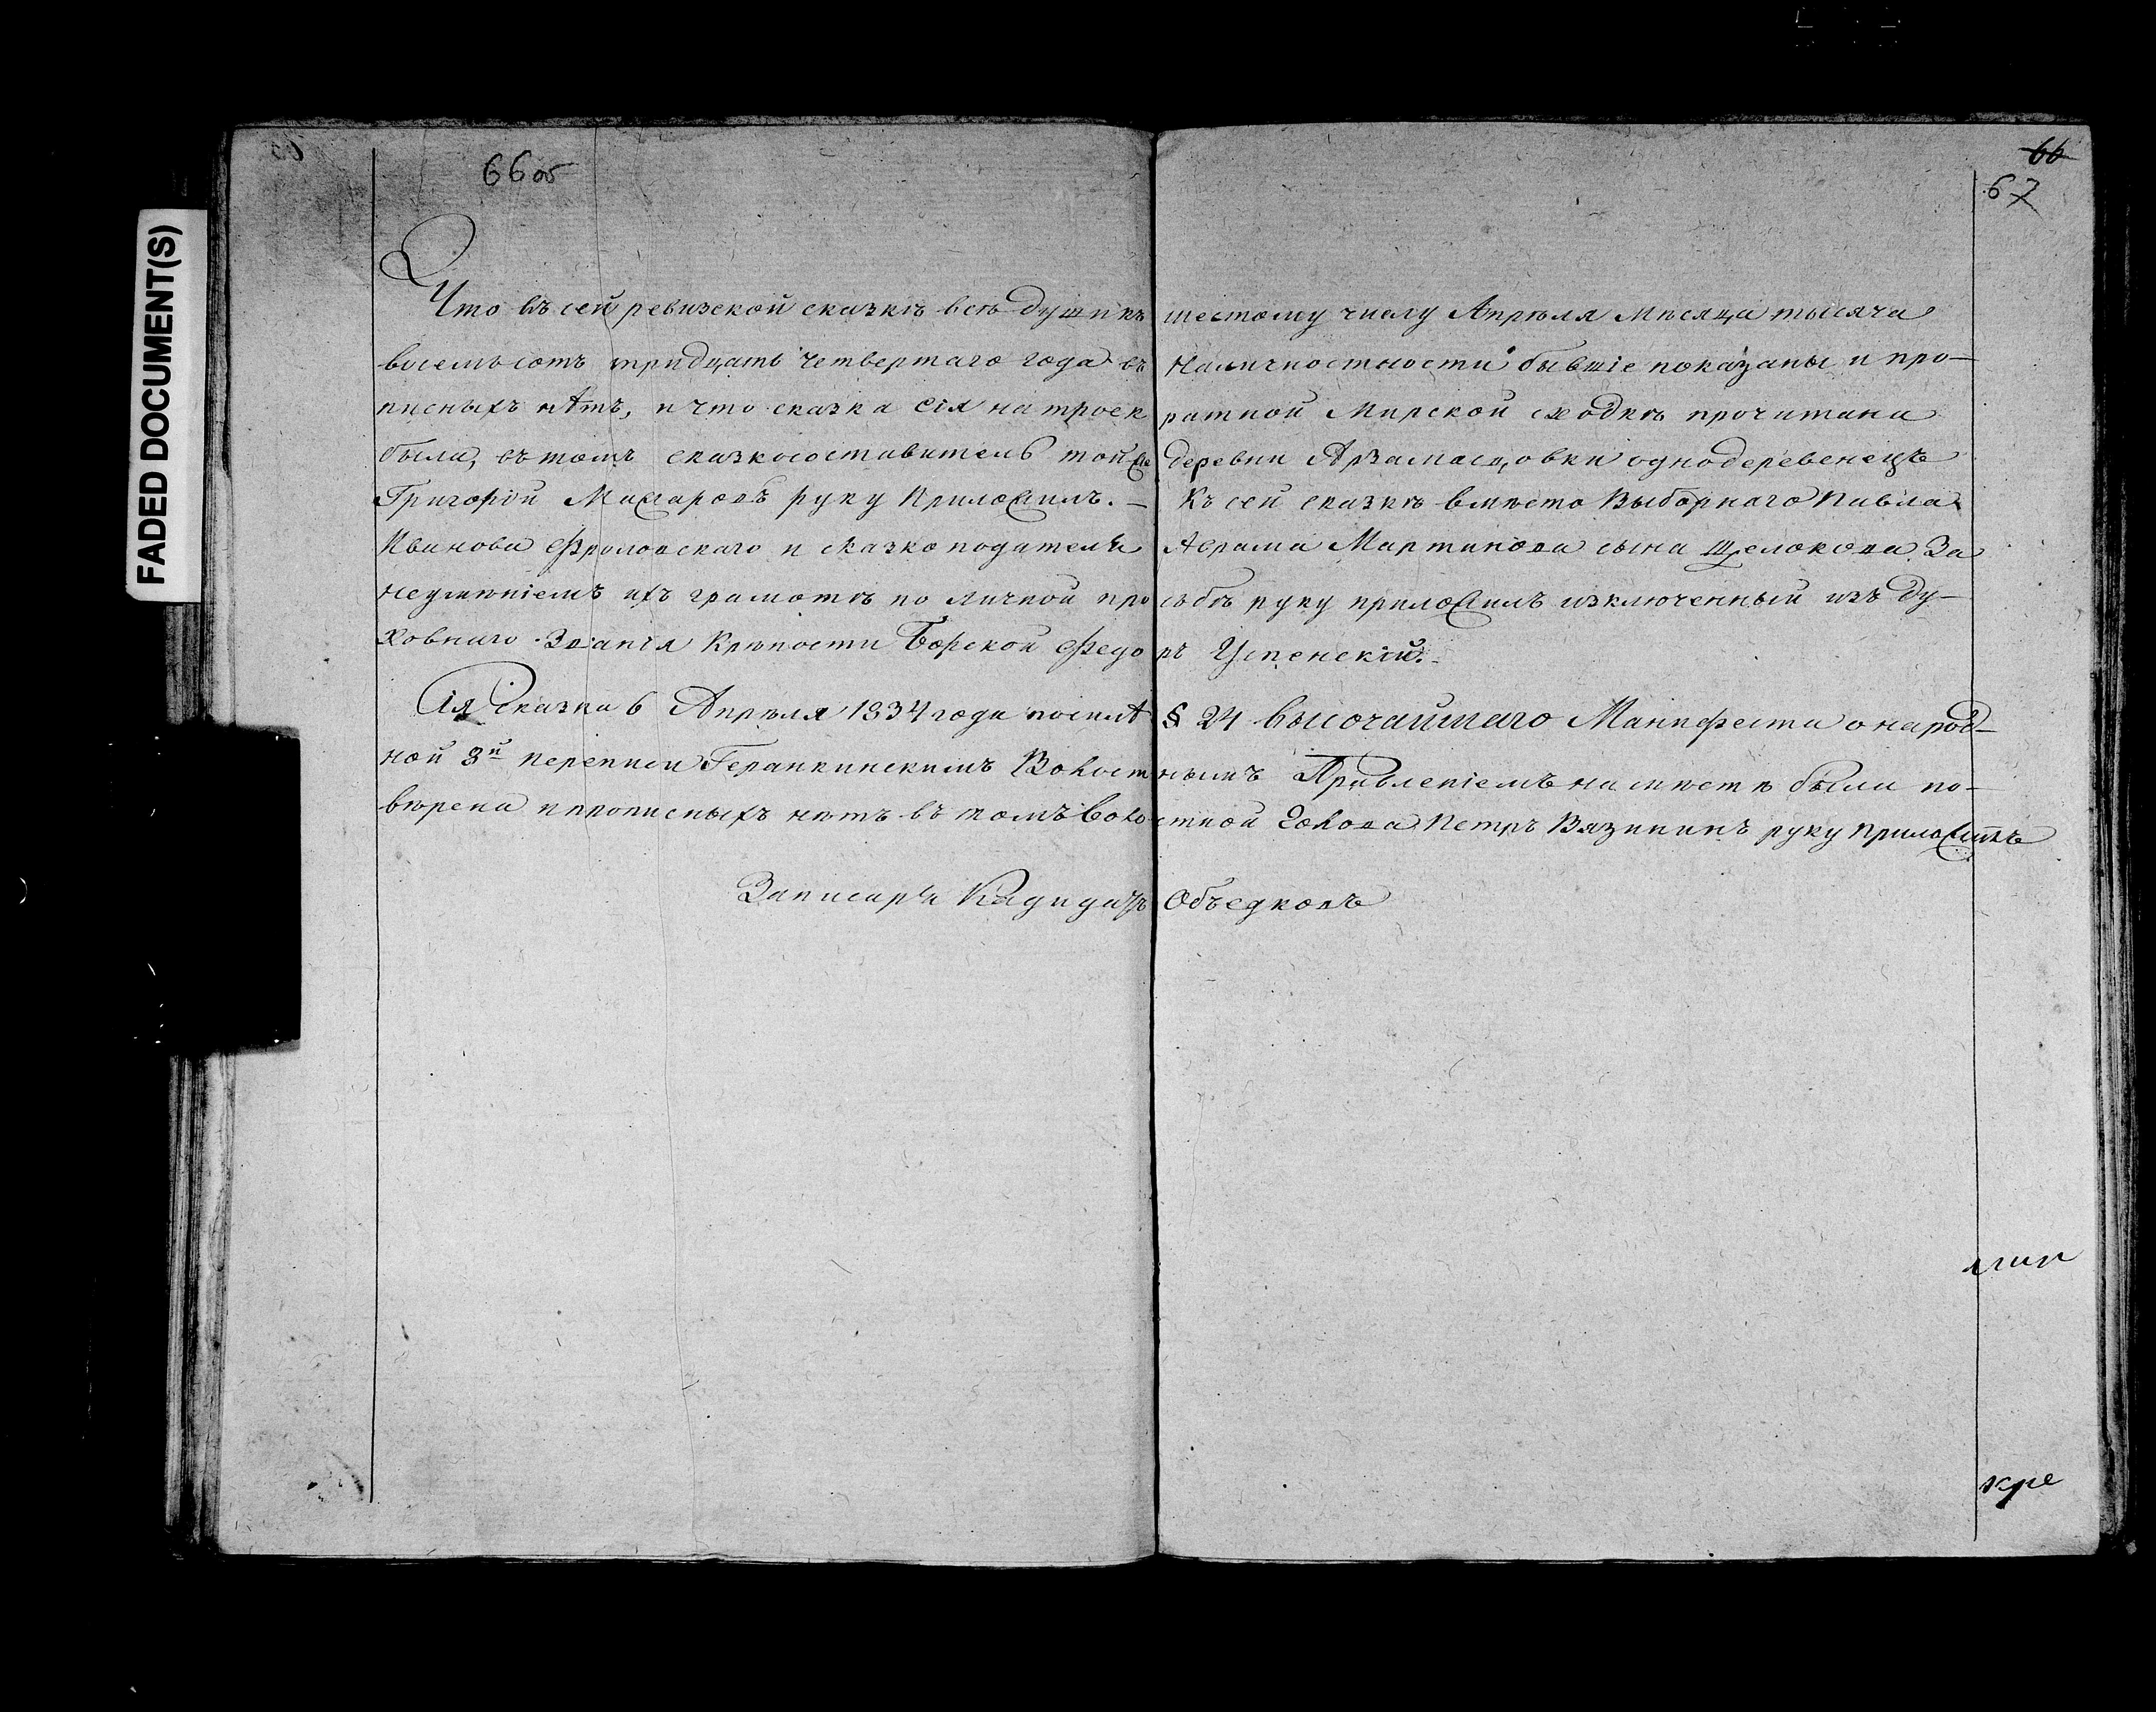 FADED DOCUMENT(S)
66 об
66
67
Что въ сей ревизской сказкѣ всѣ души къ шестому числу Апрѣля Мѣсяца тысяча
восемьсотъ тридцать четвертаго года въ Наличностности бывшіе показаны и про-
писныхъ нѣтъ, и что сказка сія на троек ратной Мирской сходкѣ прочитана
была, въ томъ сказкосоставитель той же деревни Арзамасцовки однодеревенецъ
Григорій руку Приложилъ. — Къ сей сказкѣ вмѣсто Выборнаго Павла
Иванова Фроловскаго и сказкоподателя Абрама Мартинова сына Щелокова За
неумѣніемъ ихъ грамотѣ по личной про сьбѣ руку приложилъ изключенный изъ ду-
ховнаго Званія Крѣпости Борской Федо ръ Успенскій.
Сія Сказка 6 Апрѣля 1834 года по силѣ § 24 высочайшаго Манифеста о народ-
ной 8й переписи Геранкинскимъ Волост нымъ Правленіемъ на мѣстѣ были по-
вѣрена и прописныхъ нѣтъ въ томъ Воло стной Голова Петръ Вязининъ руку приложилъ
Записаря Объедковъ
кре